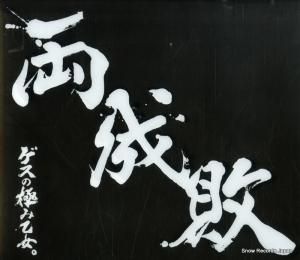 両成敗
ゲスの極み乙女。
Snow Records Japan